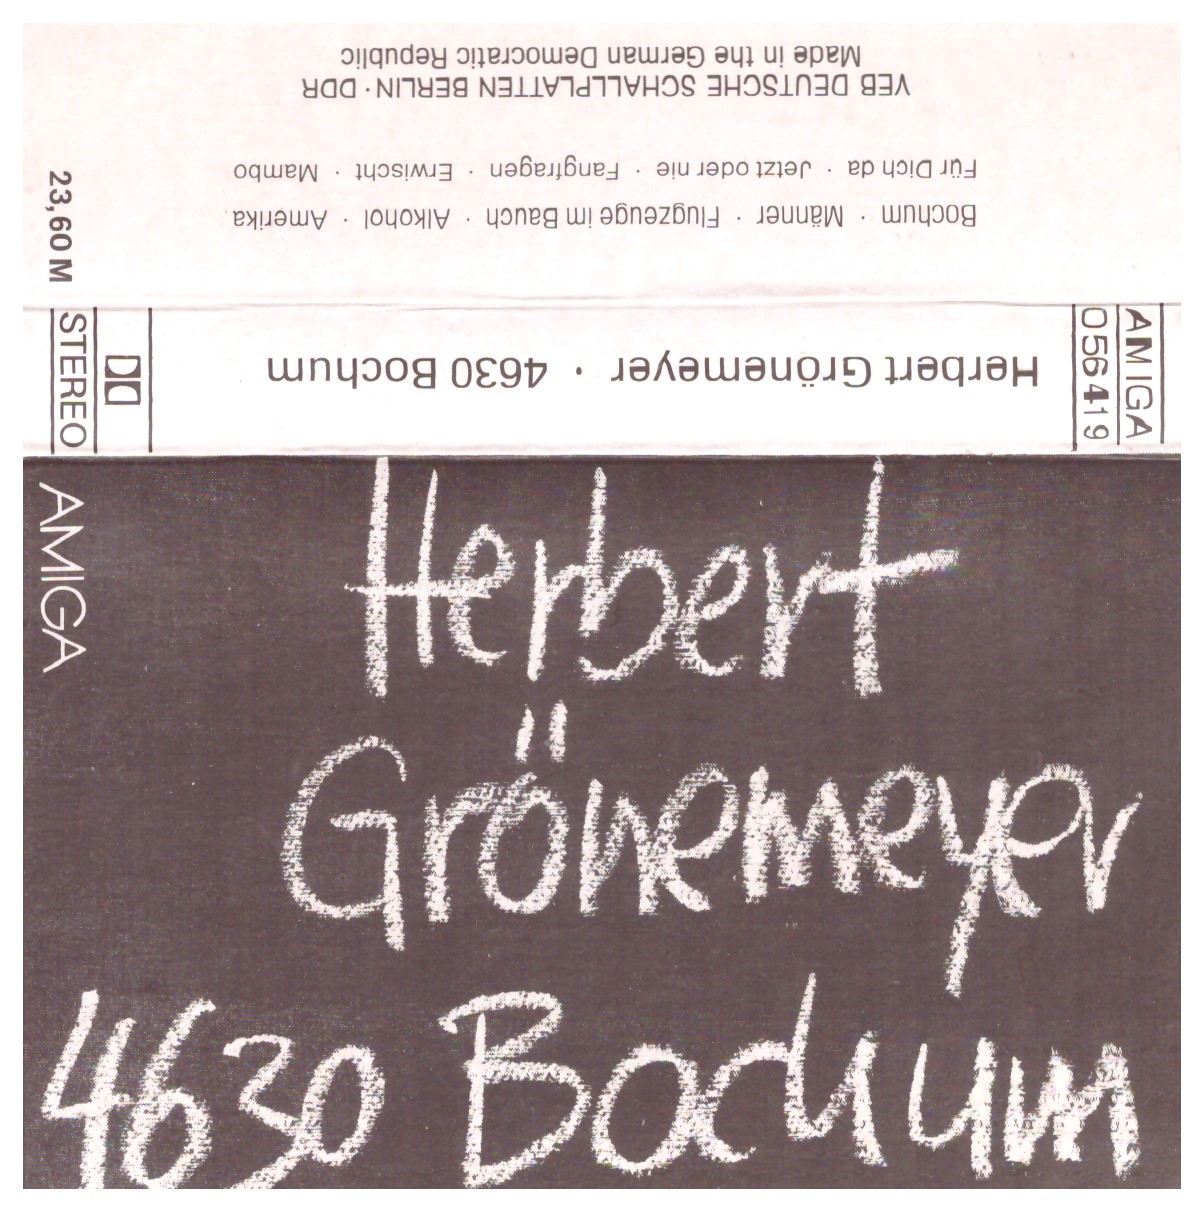 Made in the German Democratic Republic
VEB DEUTSCHE SCHALLPLATTEN BERLIN · DDR
Für Dich da · Jetzt oder nie · Fangfragen · Erwischt · Mambo
Bochum · Männer · Flugzeuge im Bauch · Alkohol · Amerika
23,60 M
STEREO
Herbert Grönemeyer · 4630 Bochum
056419
AMIGA
AMIGA
Herbert
Grönemeyer
4630 Bochum